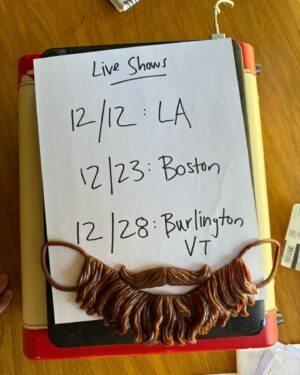 Live Shows
12/12: LA
12/23: Boston
12/28: Burlington
VT